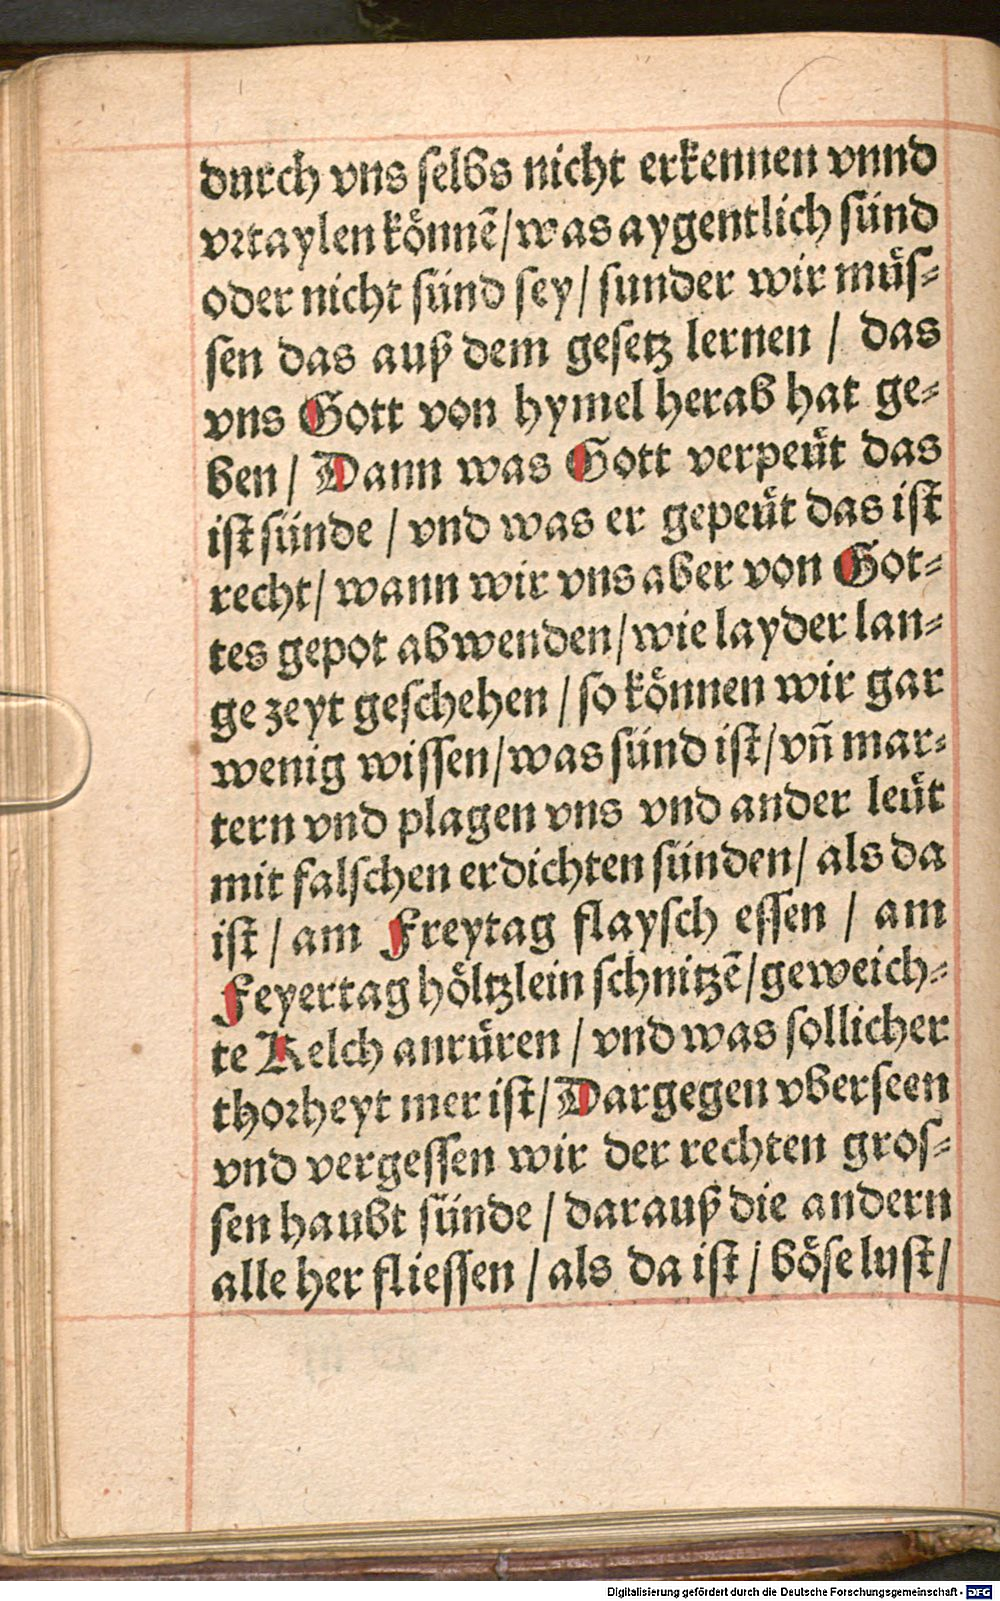 durch vns ſelbs nicht erkennen vnnd
vꝛtaylen koͤnnẽ/was aygentlich ſünd
oder nicht ſünd ſey/ ſunder wir muͤſ⸗
ſen das auß dem geſetz lernen / das
vns Gott von hymel herab hat ge⸗
ben/ Dann was Gott verpeuͤt das
iſt ſünde / vnd was er gepeuͤt das iſt
recht/ wann wir vns aber von Got⸗
tes gepot abwenden/wie layder lan⸗
ge zeyt geſchehen / ſo koͤnnen wir gar
wenig wiſſen/was ſünd iſt/vñ mar⸗
tern vnd plagen vns vnd ander leuͤt
mit falſchen erdichten ſünden/ als da
iſt / am Freytag flayſch eſſen / am
Feyertag hoͤltzlein ſchnitzẽ/geweich⸗
te Kelch anruͤren / vnd was ſollicher
thoꝛheyt mer iſt/ Dargegen vberſeen
vnd vergeſſen wir der rechten groſ⸗
ſen haubt ſünde / darauß die andern
alle her flieſſen / als da iſt / boͤſe luſt/
Digitalisierung gefördert durch die Deutsche Forschungsgemeinschaft - DFG